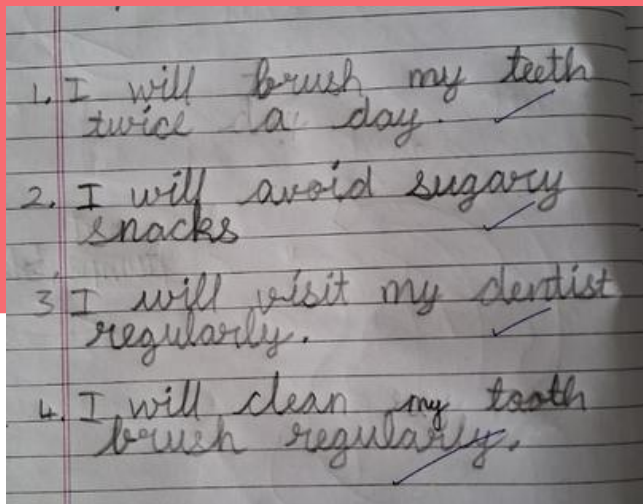 1. I will brush my teeth
twice a day.
2. I will avoid sugary
snacks
3 I will visit my dentist
regularly.
4. I will clean my tooth
brush regularly.